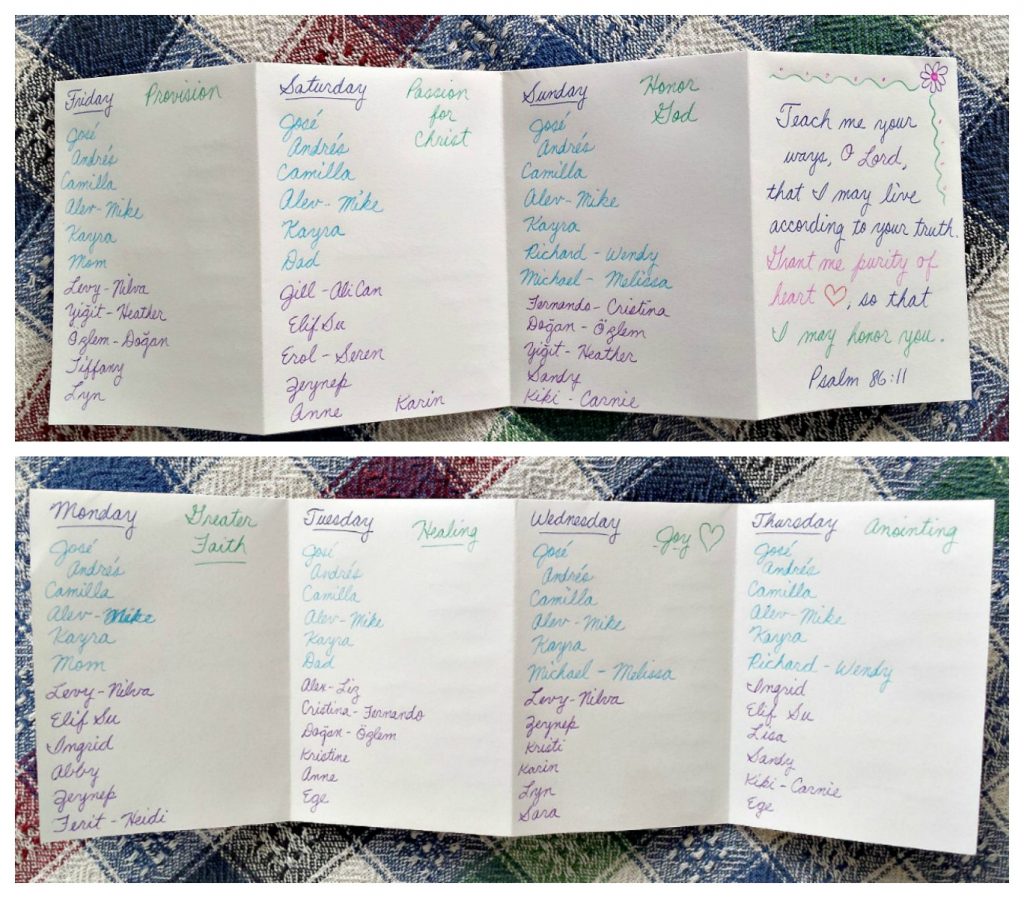 Friday Provision
José
Andrés
Camilla
Alev-Mike
Kayra
Mom
Levy-Nilva
Yiğit-Heather
Özlem-Doğan
Tiffany
Lyn
Saturday Passion
for
Christ
José
Andrés
Camilla
Alev-Mike
Kayra
Dad
Jill - AliCan
Elif Su
Erol - Seren
Zeynep
Anne Karin
Sunday Honor
God
José
Andrés
Camilla
Alev-Mike
Kayra
Richard - Wendy
Michael - Melissa
Fernando - Cristina
Doğan - Özlem
Yiğit - Heather
Sandy
Kiki - Carnie
Teach me your
ways, O Lord,
that I may live
according to your truth.
Grant me purity of
heart ♡, so that
I may honor you.
Psalm 86:11
Monday Greater
Faith
José
Andrés
Camilla
Alev-Mike
Kayra
Mom
Levy-Nilva
Elif Su
Ingrid
Abby
Zeynep
Ferit - Heidi
Tuesday Healing
José
Andrés
Camilla
Alev-Mike
Kayra
Dad
Alex-Liz
Cristina-Fernando
Doğan-Özlem
Kristine
Anne
Ege
Wednesday Joy ♡
José
Andrés
Camilla
Alev-Mike
Kayra
Michael - Melissa
Levy-Nilva
Zeynep
Kristi
Karin
Lyn
Sara
Thursday Anointing
José
Andrés
Camilla
Alev-Mike
Kayra
Richard - Wendy
Ingrid
Elif Su
Lisa
Sandy
Kiki-Carnie
Ege